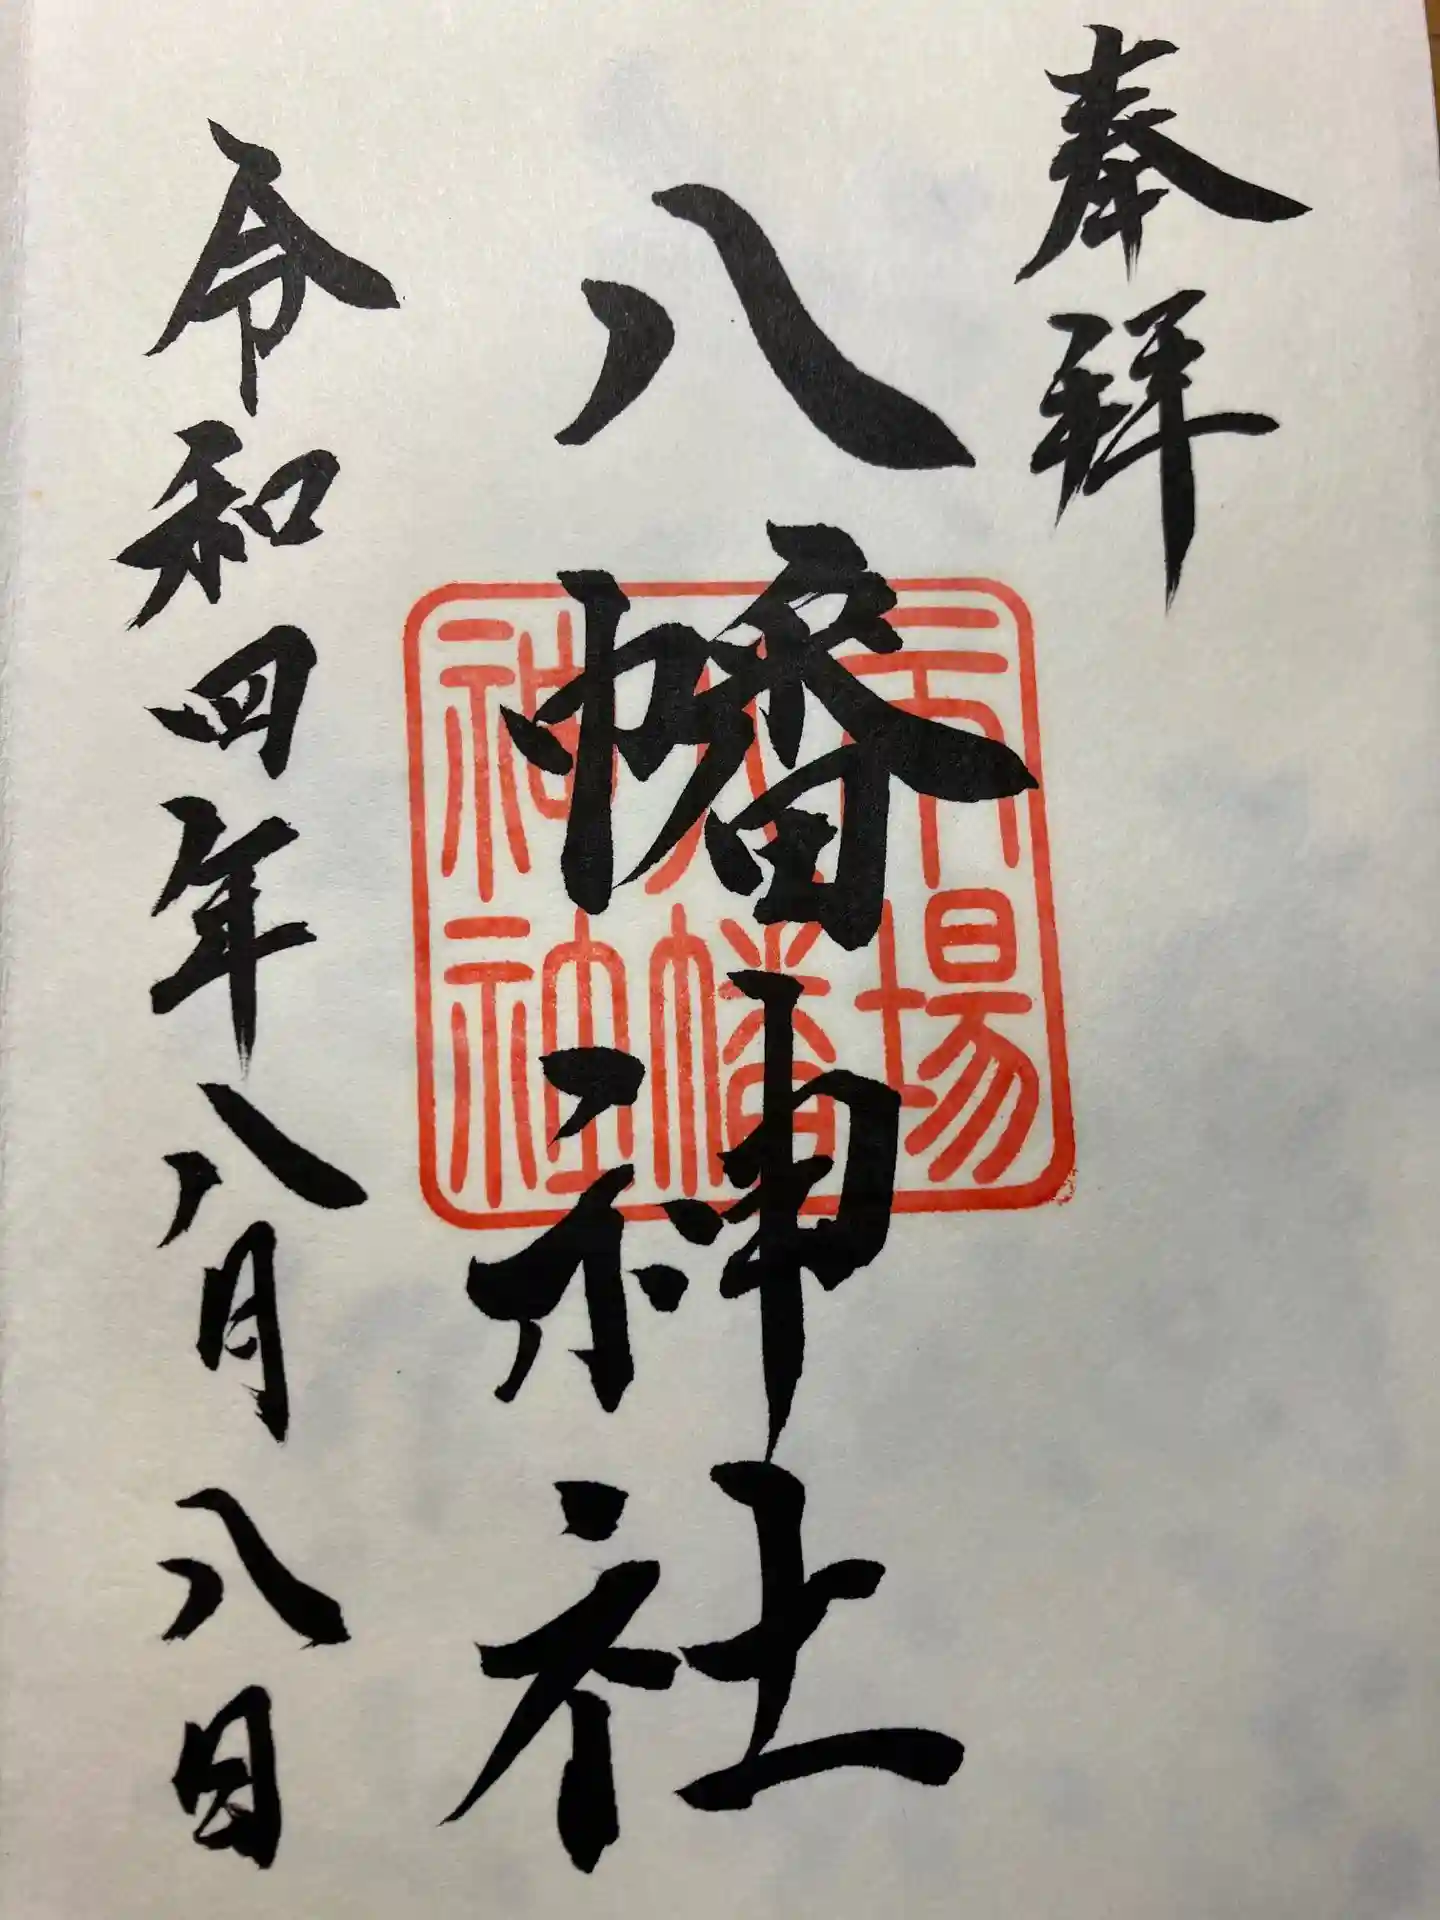 奉拝
八幡神社
令和四年八月八日
市場
八幡
神社